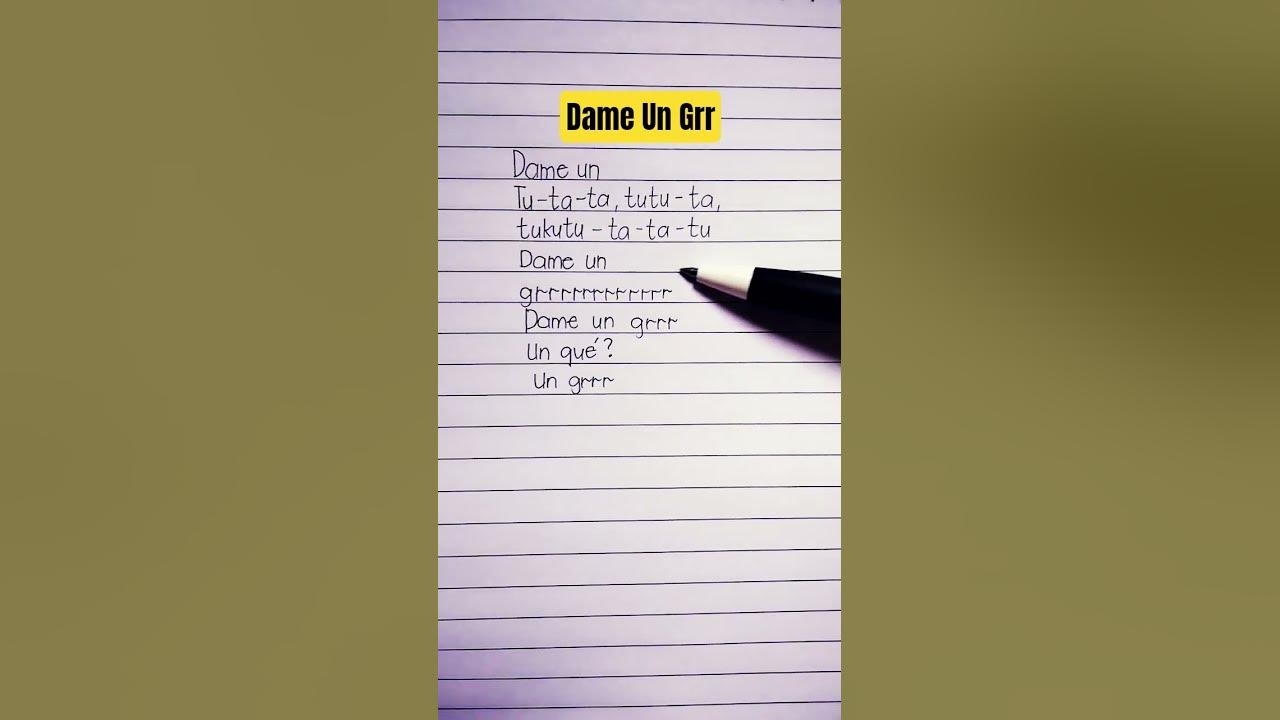 Dame Un Grr
Dame un
Tu-ta-ta, tutu-ta,
tukutu-ta-ta-tu
Dame un
grrrrrrrrrrrr
Dame un grrr
Un qué?
Un grrr